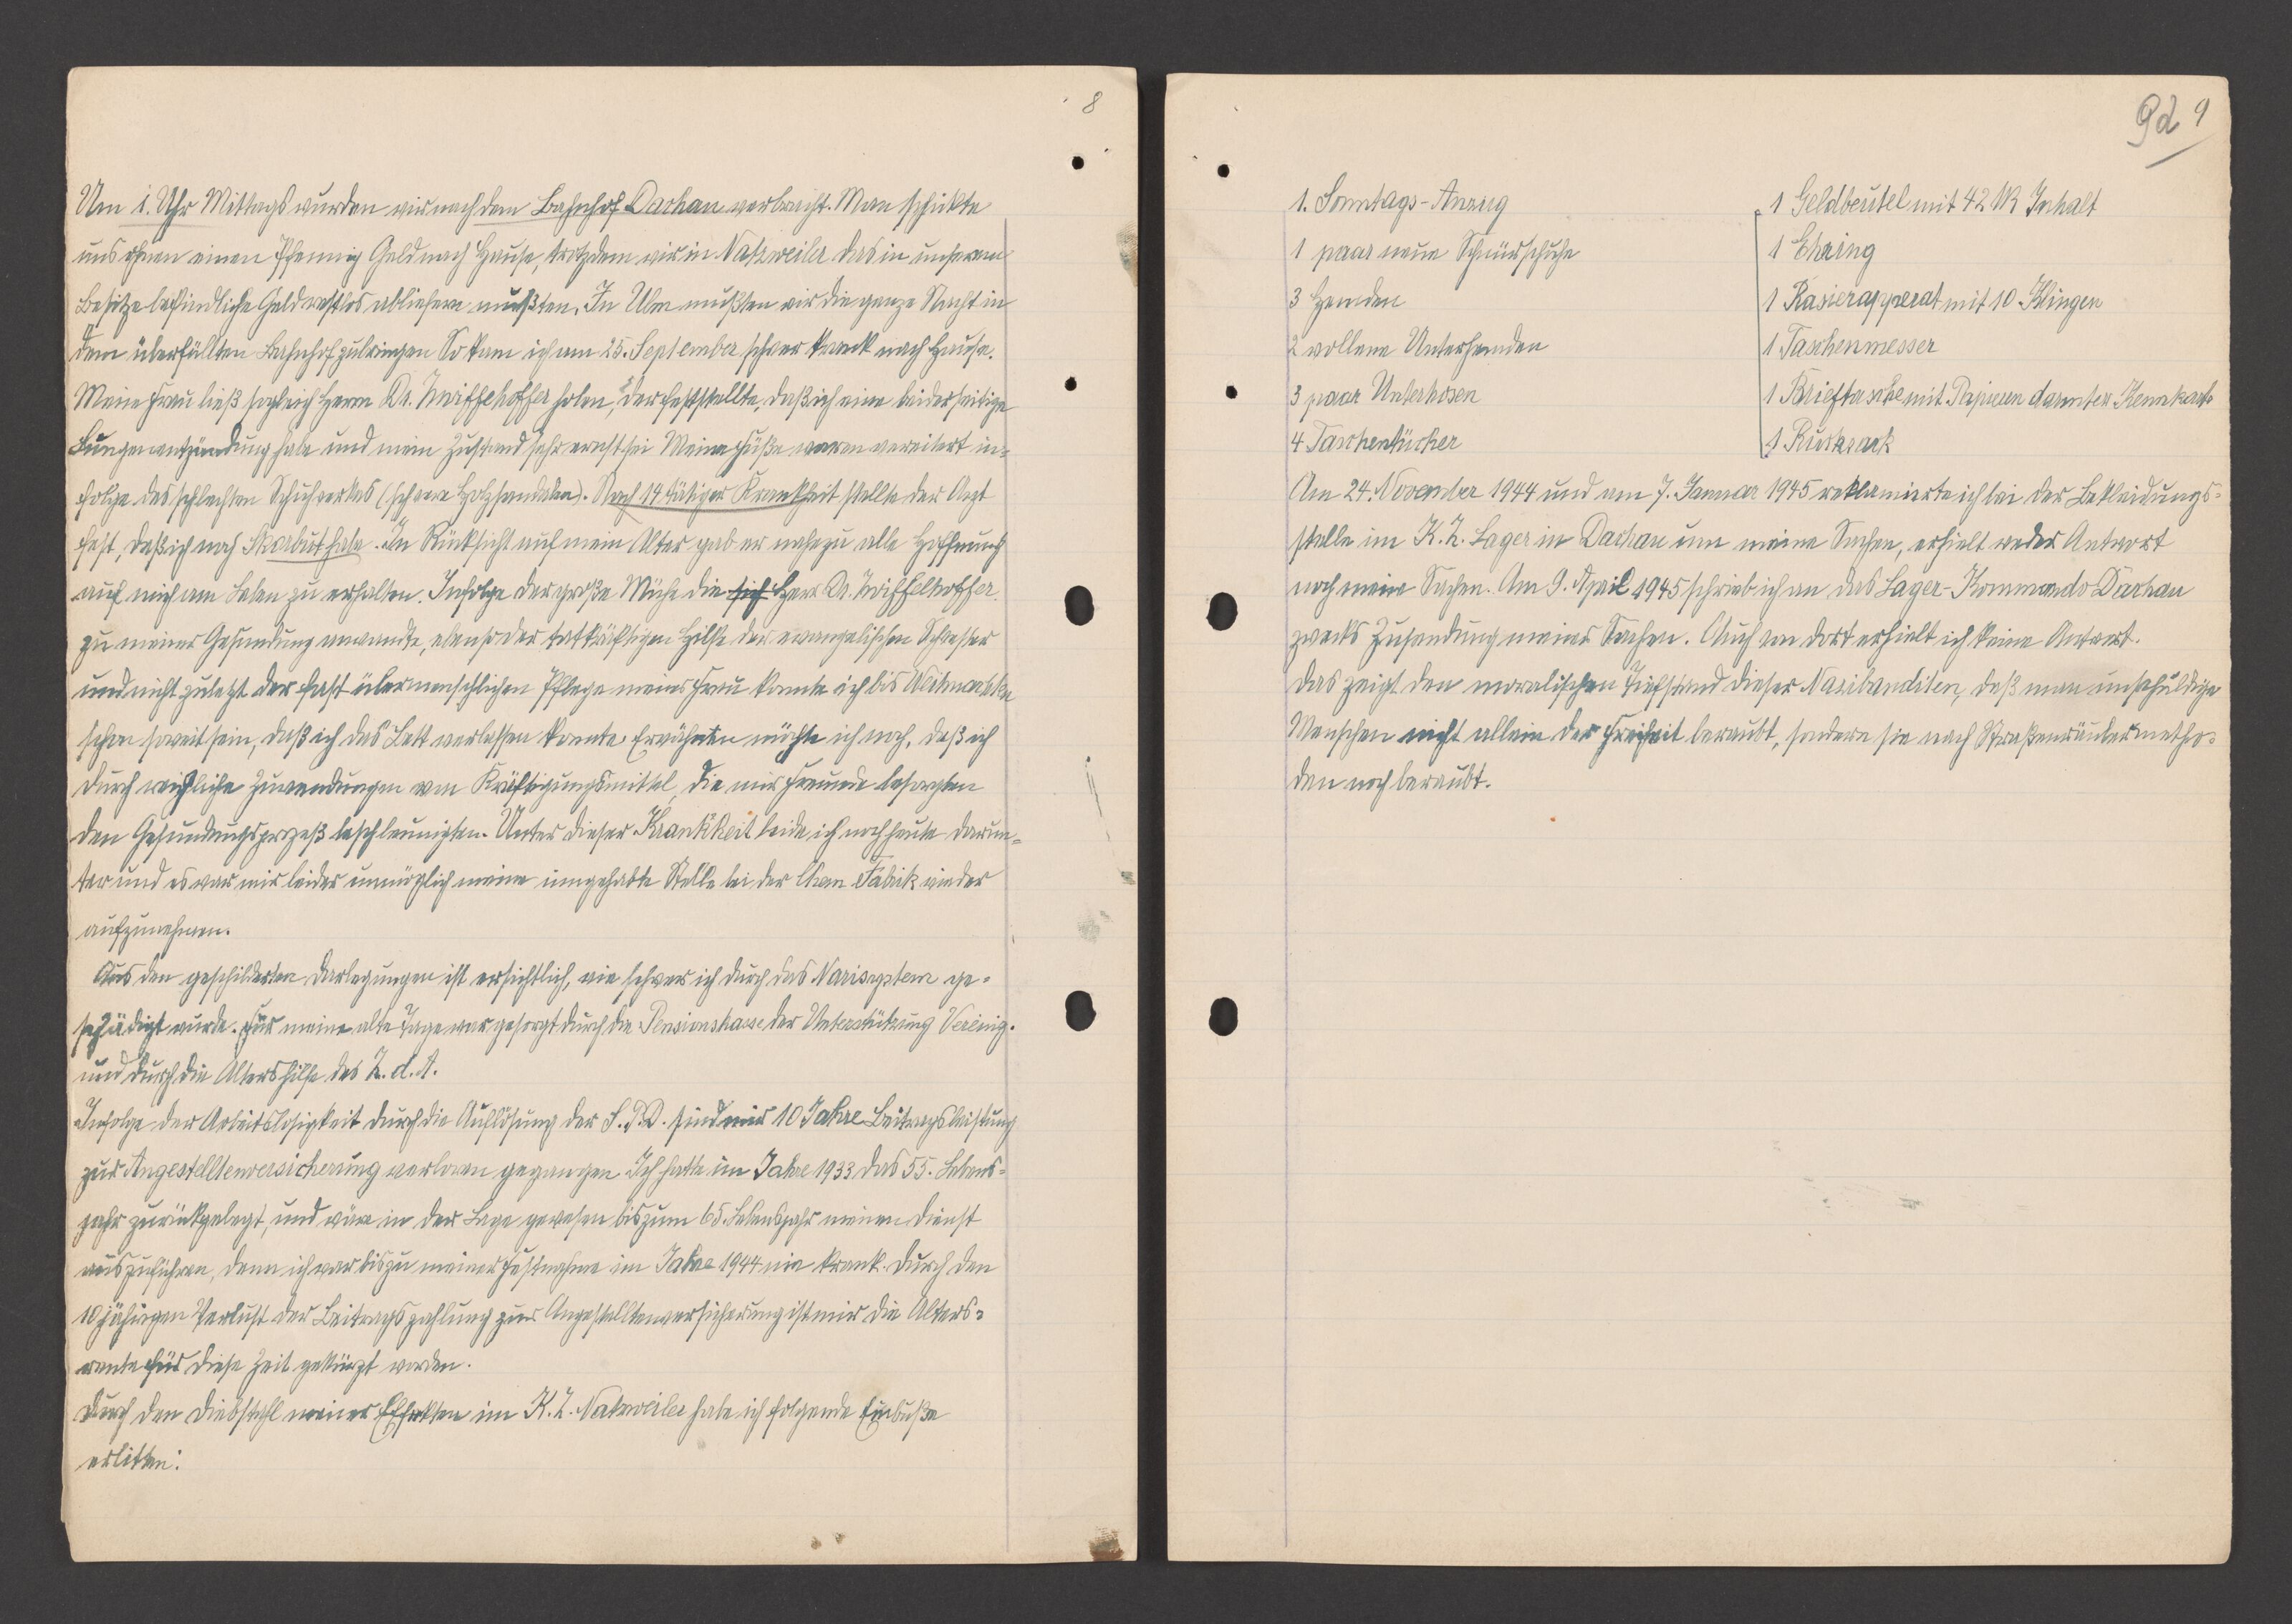 8
Um 1. Uhr Mittags wurden wir nach dem Bahnhof Dachau verbracht. Man schickte
uns ohnen einen Pfennig Geld nach Hause, trotzdem wir in Natzweiler das in unserem
Besitze befindliche Geld restlos abliefern mußten. In Ulm mußten wir die ganze Nacht in
dem überfüllten Bahnhof zubringen So kam ich am 25. September schwer krank nach Hause.
Meine Frau ließ sogleich Herrn Dr. holen, der feststellte, daß ich eine beiderseitige
Lungenentzündung habe und mein Zustand sehr ernst sei Meine Füße waren vereitert in-
folge des schlechten Schuhwerkes (schwere Holzsandalen). Nach 14 tätiger Krankheit stellte der Arzt
fest, daß ich noch Skorbut habe. In Rücksicht auf mein Alter gab er nahezu alle Hoffnung
auf mich am Leben zu erhalten. Infolge der große Mühe die sich Herr Dr.
zu meiner Gesundung anwandte, ebenso der tatkräftigen Hilfe der evangelischen Schwester
und nicht zuletzt der fast übermenschlichen Pflege meiner Frau konnte ich bis Weihnachten
schon soweit sein, daß ich das Bett verlassen konnte. Erwähnen möchte ich noch, daß ich
durch reichliche Zuwendungen von Kräftigungsmittel, die mir Freunde besorgten
den Gesundungsprozeß beschleunigten. Unter dieser Krankheit leide ich noch heute darun-
ter und es war mir leider unmöglich meine inngehabte Stelle bei der Chem Fabrik wieder
aufzunehmen.
Aus den geschilderten Darlegungen ist ersichtlich, wie schwer ich durch das Narisystem ge-
schädigt wurde. Für meine alte Tage war gesorgt durch die Pensionskasse der Unterstützung Vereinig.
und durch die Altershilfe des Z. d. A.
Infolge der Arbeitslosigkeit durch die Auflösung der S.P.D. sind mir 10 Jahre Beitragsleistung
zur Angestelltenversicherung verloren gegangen Ich hatte im Jahre 1933 das 55. Lebens-
jahr zurückgelegt, und wäre in der Lage gewesen bis zum 65. Lebensjahr meinen Dienst
auszuführen, denn ich war bis zu meiner Festnahme im Jahre 1944 nie krank. Durch den
10 jährigen Verlust der Beitragszahlung zur Angestelltenversicherung ist mir die Alters-
rente für diese Zeit gekürzt worden.
Durch den Diebstahl meiner Effekten im K. Z. Natzweiler habe ich folgende Einbuße
erlitten:
9d 9
1. Sonntags-Anzug
1 paar neue Schnürschuhe
3 Hemden
2 wollene Unterhemden
3 paar Unterhosen
4 Taschentücher
1 Geldbeutel mit 42 M Inhalt
1 Ehring
1 Rasierapperat mit 10 Klingen
1 Taschenmesser
1 Brieftasche mit Papieren darunter Kennkarte
1 Rucksack
Am 24. November 1944 und am 7. Januar 1945 reklamierte ich bei der Bekleidungs-
stelle im K. Z. Lager in Dachau um meine Sachen, erhielt weder Antwort
noch meine Sachen. Am 9. April 1945 schrieb ich an das Lager-Kommando Dachau
zwecks Zusendung meiner Sachen. Auch von dort erhielt ich keine Antwort.
Das zeigt den moralischen Tiefstand dieser Nazibanditen, daß man unschuldige
Menschen nicht allein der Freiheit beraubt, sondern sie nach Straßenräubermetho-
den noch beraubt.